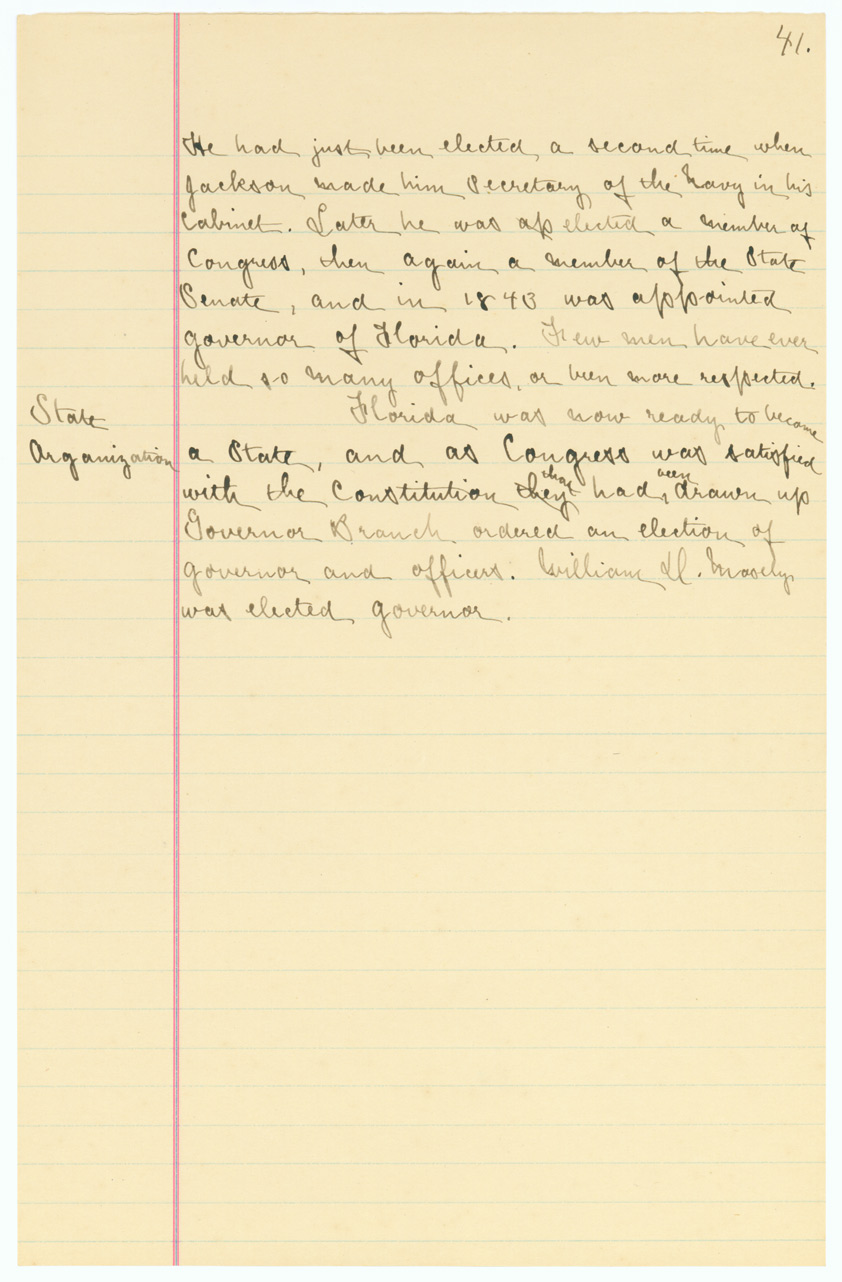 41.
He had just been elected a second time when
Jackson made him Secretary of the Navy in his
Cabinet. Later he was ap elected a member of
Congress, then again a member of the State
Senate, and in 1843 was appointed
governor of Florida. Few men have ever
held so many offices, or been more respected.
State
Organization
Florida was now ready to become
a State, and as Congress was satisfied
with the Constitution they that had, been drawn up
Governor Branch ordered an election of
governor and officers. William D. Mosely
was elected governor.